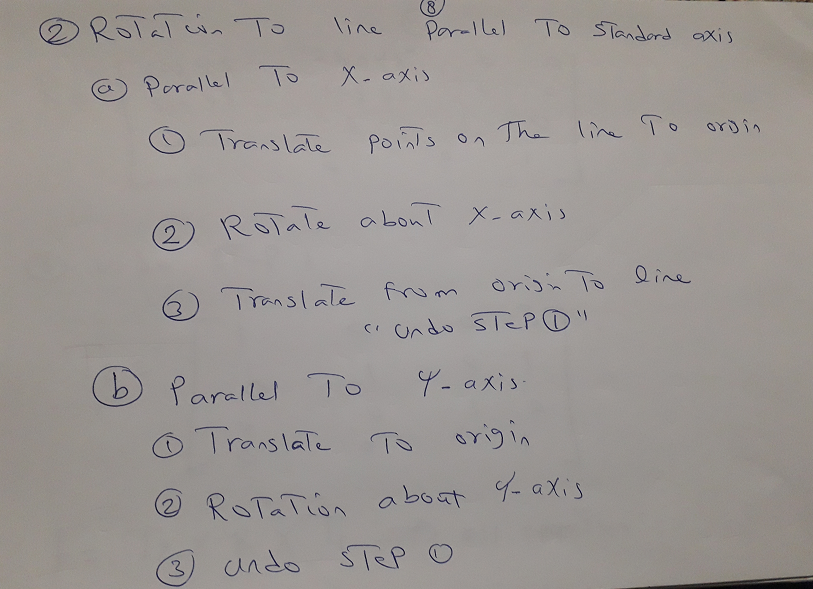 ⑧
② Rotation To line Parallel To Standard axis
ⓐ Parallel To X-axis
① Translate points on The line To origin
② Rotate about X-axis
③ Translate from origin To line
"undo STeP ①"
ⓑ Parallel To Y-axis.
① Translate To origin
② Rotation about Y-axis
③ undo STeP ①